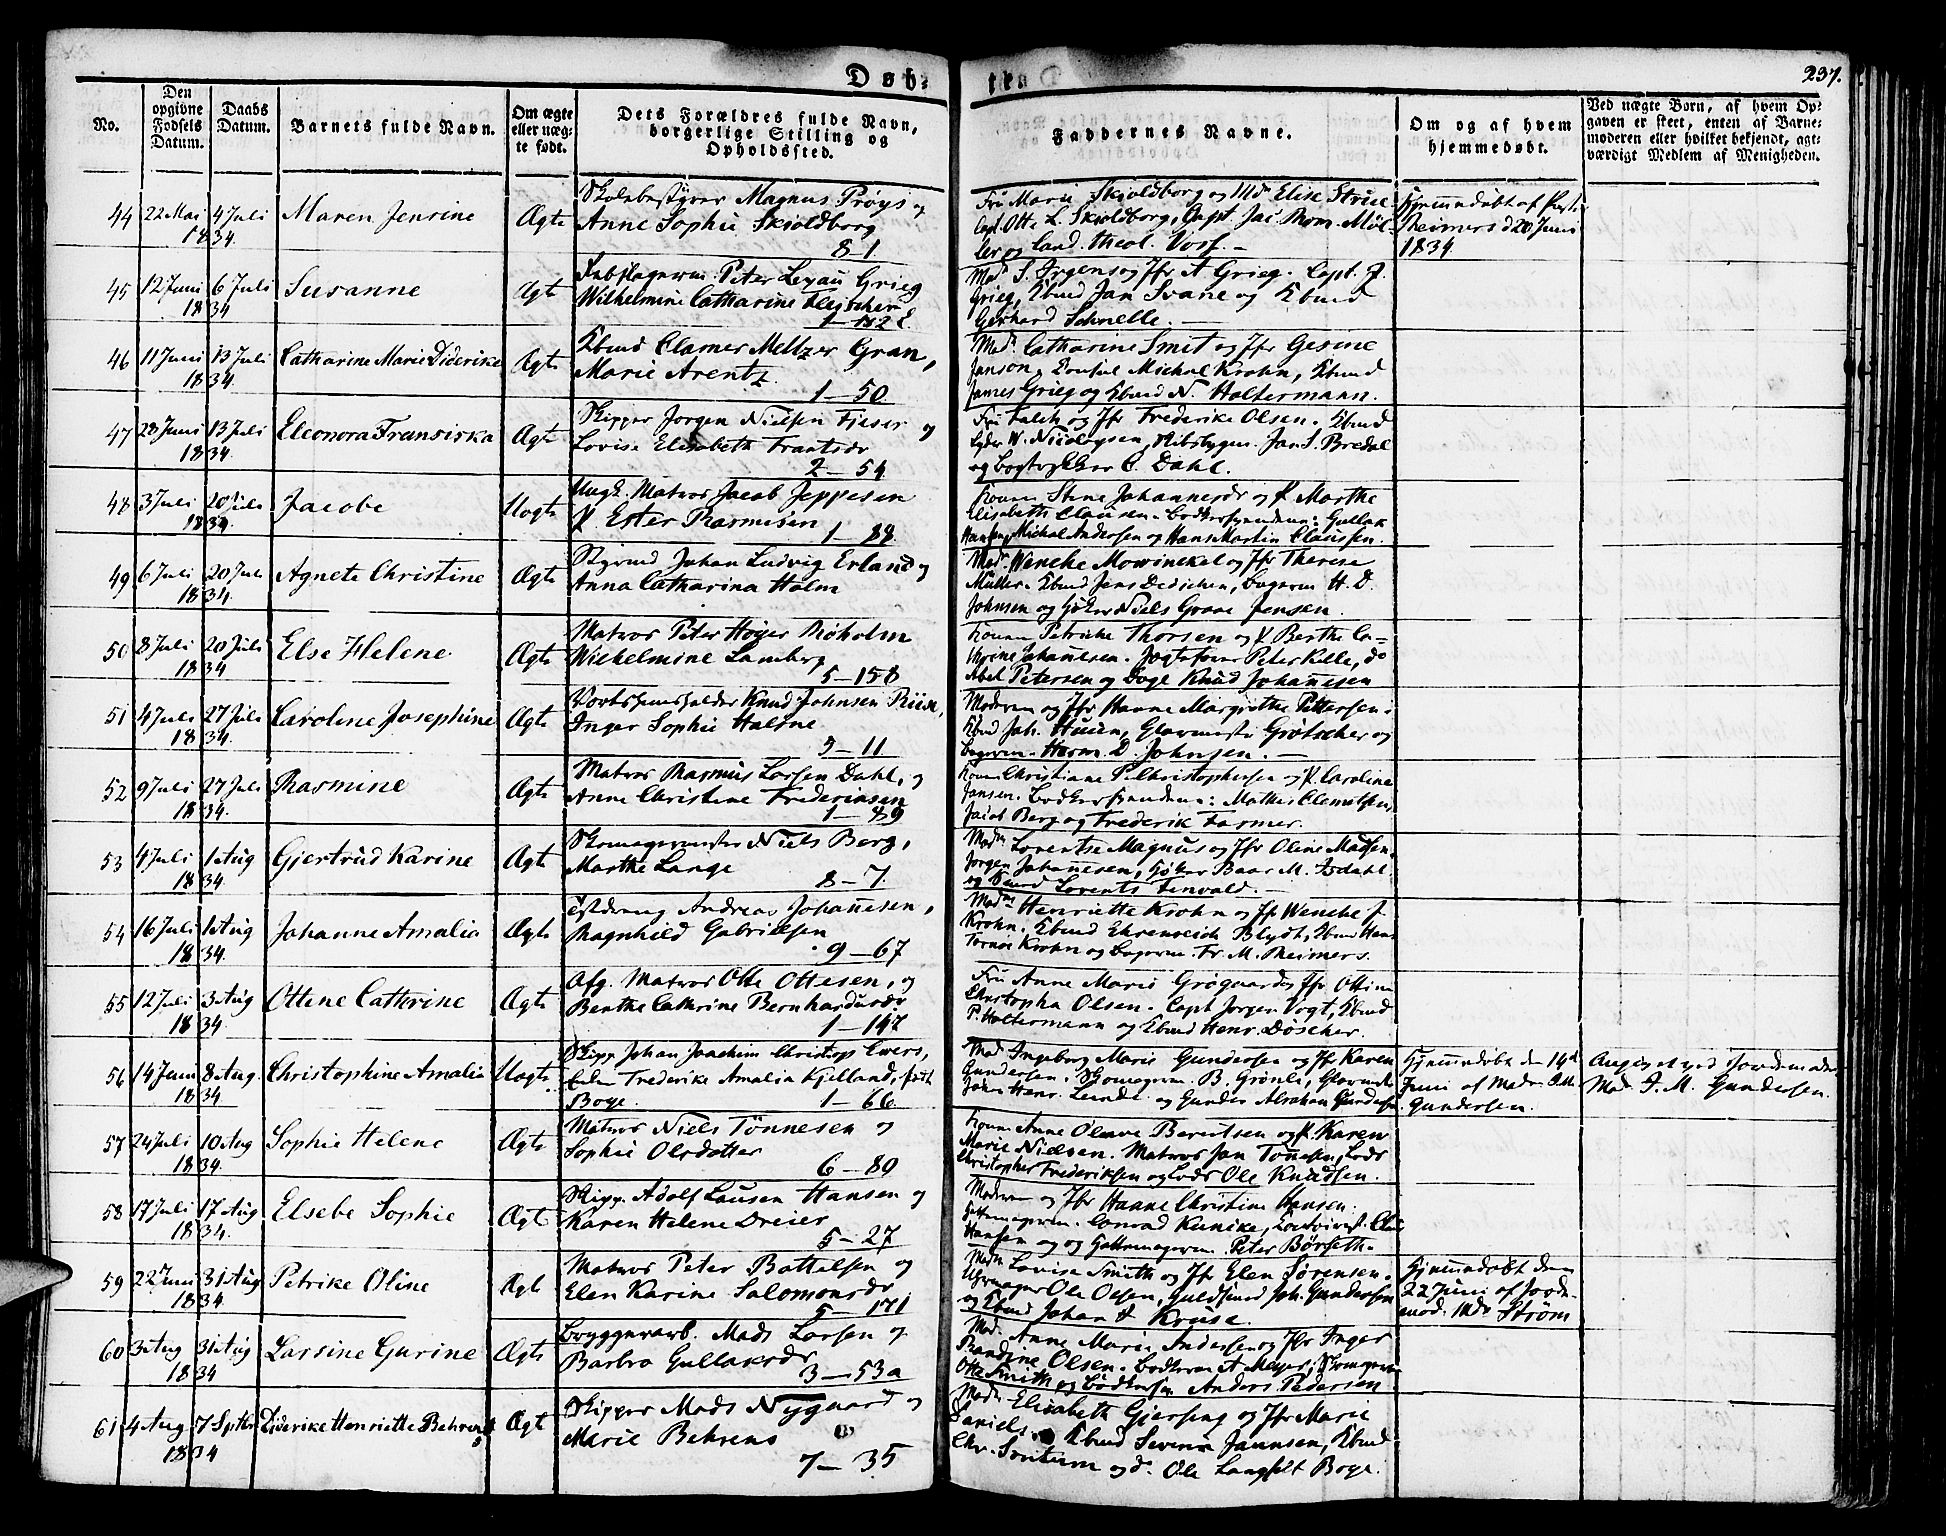 Døb-
te
237.
No.
Den opgivne Fødsels Datum.
Daabs Datum.
Barnets fulde Navn.
Om ægte eller uæg- te født.
Dets Forældres fulde Navn, borgerlige Stilling og Opholdssted.
Faddernes Navne.
Om og af hvem hjemmedøbt.
Ved uægte Børn, af hvem Op- gaven er skeet, enten af Barne- moderen eller hvilket bekjendt, agt- værdigt Medlem af Menigheden.
44 22 Mai 4 Juli 1834 Maren Jensine Ægte
Magnus Prøys og
Anne Sophie Skioldborg
8 1
Fru Marie Skioldborg og Md. Elise
Capt. Otte L. Skioldborg, Capt. Jac. Mom. Møl-
ler og Cand. theol. Voss.
Hjemmedøbt af
Reimers d 20 Juni
1834
45 12 Juni 6 Juli 1834 Susanne Ægte
Peter Lexau Grieg
Wilhelmine Catharine Fleischer
Mad. S. Irgens og Jfr A. Grieg. Capt. J.
Grieg, Kbmd Jan Svane og Kbmd
Gerhard Schnelle.
46 11 Juni 13 Juli 1834 Catharine Marie Diderike Ægte
Kbmd Clamer Meltzer Gran,
Marie Arentz.
1 — 50
Mad. Catharine Smit og Jfr Gesine
Janson, Consul Michael Krohn, Kbmd
James Grieg og Kbmd N. Holtermann.
47 28 Juni 13 Juli 1834 Eleonora Fransiska Ægte
Skipper Jørgen Nielsen Fieser og
Lovise Elisabeth Frantsdr
2 — 54
Fru Falch og Jfr Frederike Olsen. Kbmd
Lyder W. Nicolaysen, Skibsbygm. Jan S. Bredal
og Bogtrykker C. Dahl.
48 3 Juli 20 Juli 1834 Jacobe Uægte
Ungk. Matros Jacob Jeppesen
P. Ester Rasmusen
1 — 88
Konen Stine Johannesdr og P. Marthe
Elisabeth Clausen. Bødkersvendene: Gullak
Hansen, Michal Andersen og Hans Martin Claussen.
49 6 Juli 20 Juli 1834. Agnete Christine Ægte
Styrmd Johan Ludvig Erland og
Anna Catharina Holm
Mad. Wencke Mowinckel og Jfr Therese
Müller. Kbmd Jens Dedichen, Bagerm. H. D.
Johnsen og Høker Niels Grave Jensen.
50 8 Juli 20 Juli 1834 Else Helene Ægte
Matros Peter Høyer Moholm
Wilhelmine Lamberg
5 — 158
Konen Petriche Thorsen og P. Berthe Ca-
thrine Johannesen. Jægtefører Peter Kelle, do
Abel Petersen og Dage Knud Johannesen
51 4 Juli 27 Juli 1834. Caroline Josephine Ægte
Knud Johnsen Riise,
Inger Sophie Halsne
5 — 11
Moderen og Jfr Hanne Margrethe Pettersen.
Kbmd Joh. Huun, Glarmester Grøtscher og
Bagerm. Herm. D. Johnsen.
52 9 Juli 27 Juli 1834. Rasmine Ægte
Matros Rasmus Larsen Dahl, og
Anne Christine Frederiksen
1 — 49
Konen Christiane P. Christophersen og P. Caroline
Jansen. Bødkersvendene: Mathis Clemetsen,
Jacob Berg og Frederik Farmer.
53 4 Juli 1 Aug 1834. Gjertrud Karine Ægte
Skomagermester Niels Berg,
Marthe Lange
8 — 7.
Mad. Lorentse Magnus og Jfr Oline Madsen.
Jørgen Johannesen, Høker Baar M. Isdahl
og Svend Lorents Tenvald.
54 16 Juli 1 Aug 1834. Johanne Amalia Ægte
Andreas Johannesen,
Magnhild Gabrielsen
9 — 67
Mad. Henriette Krohn og Jfr Wencke J.
Krohn. Kbmd Ehrenreich Blydt, Kbmd Hans
Tornøe Krohn og Bagerm. Fr. M. Reimers.
55 12 Juli 3 Aug 1834 Ottene Cathrine Ægte
Afg. Matros Otte Ottesen, og
Benthe Cathrine Bernhardusdr
1 — 147
Fru Anne Marie Grøgaard og Jfr. Ottine
Christopha Olsen. Capt Jørgen Vogt, Kbmd
P. Holtermann og Kbmd Henr. Døscher.
56 14 Juni 8 Aug. 1834 Christophine Amalia Uægte
Skipp. Johan Joachim Christop Ewers,
Frederike Amalia Kjelland, født
Boye. 1 — 66
Mad. Ingeborg Marie Gundersen og Jfr Karen
Gundersen. Skomagerm. B. Grønli, Glarmest.
Johan Henr. og Gunder Abraham Gundersen
Hjemmedøbt den 14de
Juni af Mad. Ott.
Gundersen.
Angivet ved Jordemoder
Mad. I. M. Gundersen.
57 24 Juli 10 Aug 1834. Sophie Helene Ægte
Matros Niels Tönnesen og
Sophie Olsdatter
6 — 80
Konen Anne Olave Berentsen og P. Karen
Marie Nielsen. Matros Jan Tönnesen, Lods
Christopher Frederiksen og Lods Ole Knudsen.
58 17 Juli 17 Aug 1834. Elsebe Sophie Ægte
Skipp. Adolf Lausen Hansen og
Karen Helene Dreier
5 — 27
Moderen og Jfr Hanne Christine Hansen.
Hattemagerm. Conrad Kunike,
Hansen og og Hattemagerm. Peter Børseth.
59 22 Juni 31 Aug 1834. Petrike Oline Ægte
Matros Peter Battalsen og
Elen Karine Salomonsdr
5 — 171
Mad. Lovise Smith og Jfr Elen Sørensen.
Uhrmager Ole Olsen, Guldsmed Joh. Gundersen
og Kbmd Johan D. Kruse.
Hjemmedøbt den
22 Juni af Jorde-
mod. Md. Strøm
60 3 Aug 31 Aug 1834 Larsine Gurine Ægte
Bryggerarb. Mads Larsen og
Barbro Gullaksdr
3 — 53a
Mad. Anne Marie Andersen og Jfr Inger
Randine Olsen. Bødkerm. A Meyer, Skomagerm
Otto Smith og Bødkersv. Anders Pedersen
61 4 Aug 7 Sptbr 1834 Diderike Henriette Behrens Ægte
Skipper Mads Nygaard og
Marie Behrens
7 — 35
Mad. Elisabeth Gjersing og Jfr Marie
Daniels. Kbmd Severin Jannsen, Kbmd
Chr. Sontum og d. Ole Langfelt Boge.